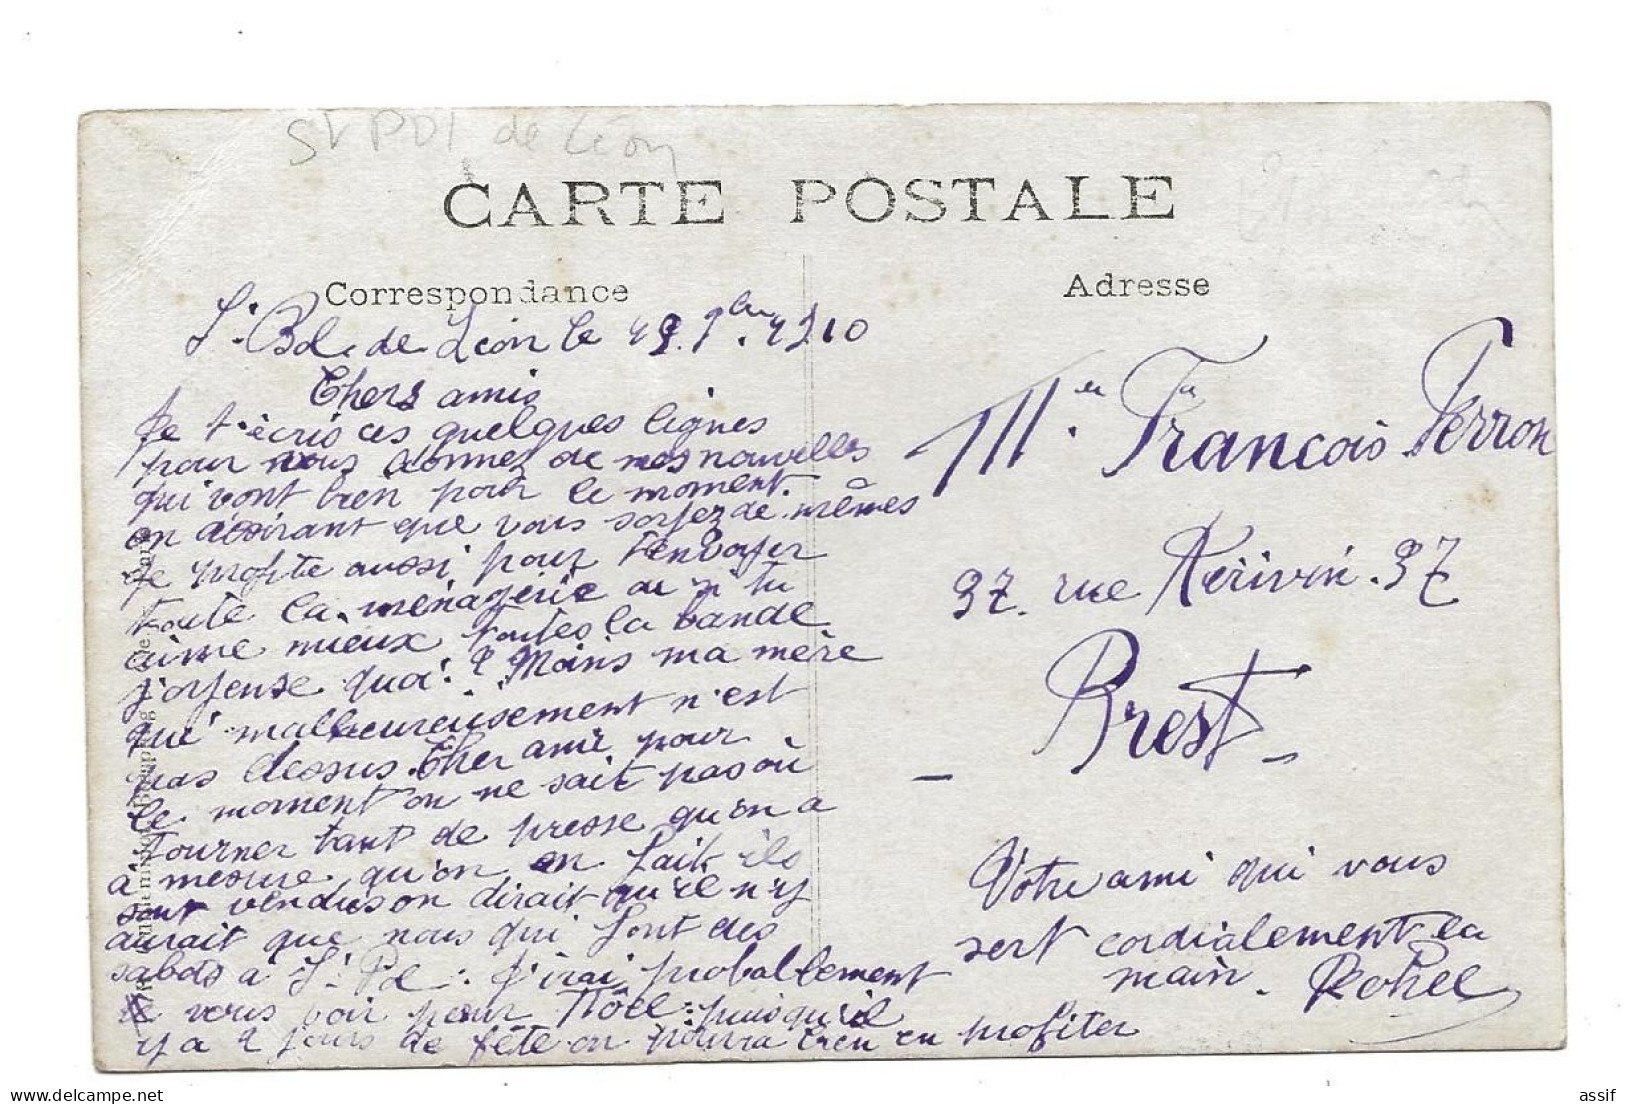 St POL de Léon
CARTE POSTALE
Correspondance
Adresse
St. Pol. de Léon le 1910
Chers amis
Je t'écris ces quelques lignes
pour vous donnez de nos nouvelles
qui vont bien pour le moment.
en désirant que vous soyez de mêmes
Je profite aussi pour t'envoyer
toute la ménagerie ou si tu
aime mieux toutes la bande
joyeuse quoi. ? Moins ma mère
qui malheureusement n'est
pas dessus. Cher ami pour
le moment on ne sait pas où
tourner tant de presse qu'on a
à mesure qu'on en fait ils
sont vendus on dirait qu'il n'y
aurait que nous qui font des
sabots a St. Pol. J'irai proballement
vous voir pour Nôel puisqu'il
y a 2 jours de fête on pourra bien en profiter
Mr François Perron
37. rue Kerivin. 37
Brest
Votre ami qui vous
sert cordialement la
main.
assif
delcampe.net